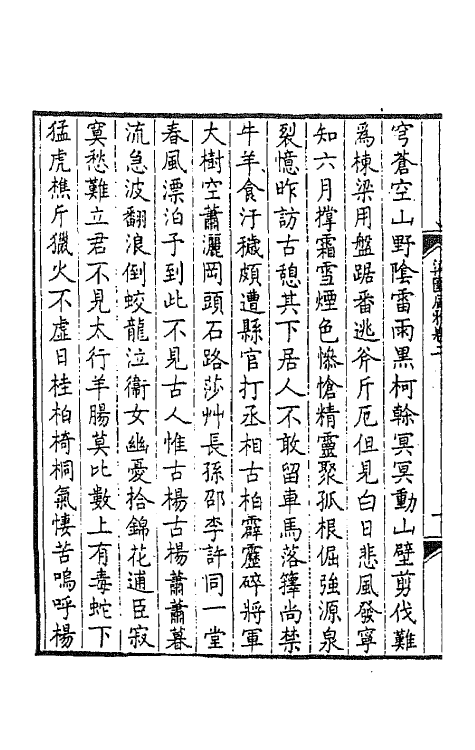 穹蒼空山野陰雷雨黑柯榦冥冥動山壁剪伐難
爲棟梁用盤踞番逃斧斤厄但見白日悲風發寧
知六月撑霜雪煙色慘愴精靈聚孤根倔強源泉
裂憶昨訪古憩其下居人不敢留車馬落籜尚禁
牛羊食汙穢頗遭縣官打丞相古柏霹靂碎將軍
大樹空蕭灑岡頭石路莎艸長孫邵李許同一堂
春風漂泊子到此不見古人惟古楊古楊蕭蕭暮
流急波翻浪倒蛟龍泣衞女幽憂拾錦花逋臣寂
寞愁難立君不見太行羊腸莫比數上有毒蛇下
猛虎樵斤獵火不虛日桂柏椅桐氣悽苦嗚呼楊
梁園風雅卷二